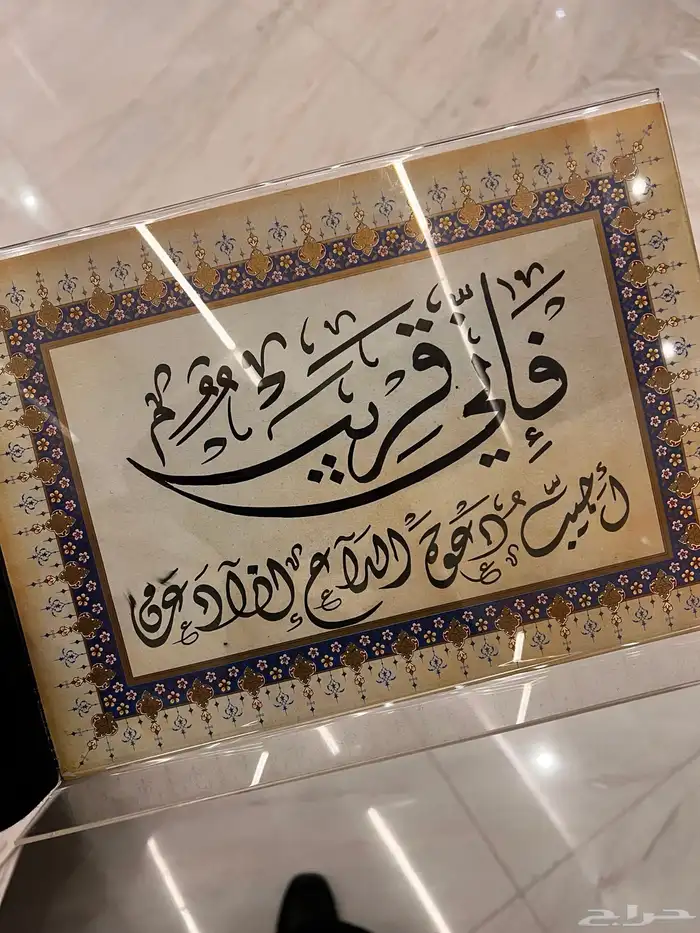 فَإِنِّي قَرِيبٌ
أُجِيبُ دَعْوَةَ الدَّاعِ إِذَا دَعَانِ
حراج